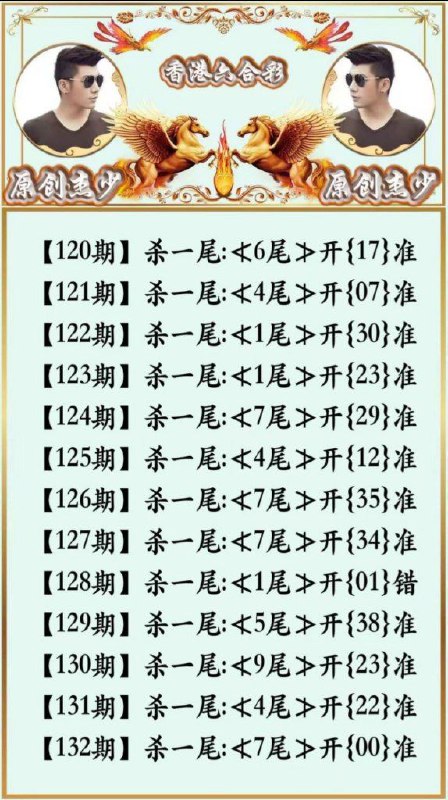 香港六合彩
原创杰少 原创杰少
【120期】杀一尾:≮6尾≯开{17}准
【121期】杀一尾:≮4尾≯开{07}准
【122期】杀一尾:≮1尾≯开{30}准
【123期】杀一尾:≮1尾≯开{23}准
【124期】杀一尾:≮7尾≯开{29}准
【125期】杀一尾:≮4尾≯开{12}准
【126期】杀一尾:≮7尾≯开{35}准
【127期】杀一尾:≮7尾≯开{34}准
【128期】杀一尾:≮1尾≯开{01}错
【129期】杀一尾:≮5尾≯开{38}准
【130期】杀一尾:≮9尾≯开{23}准
【131期】杀一尾:≮4尾≯开{22}准
【132期】杀一尾:≮7尾≯开{00}准